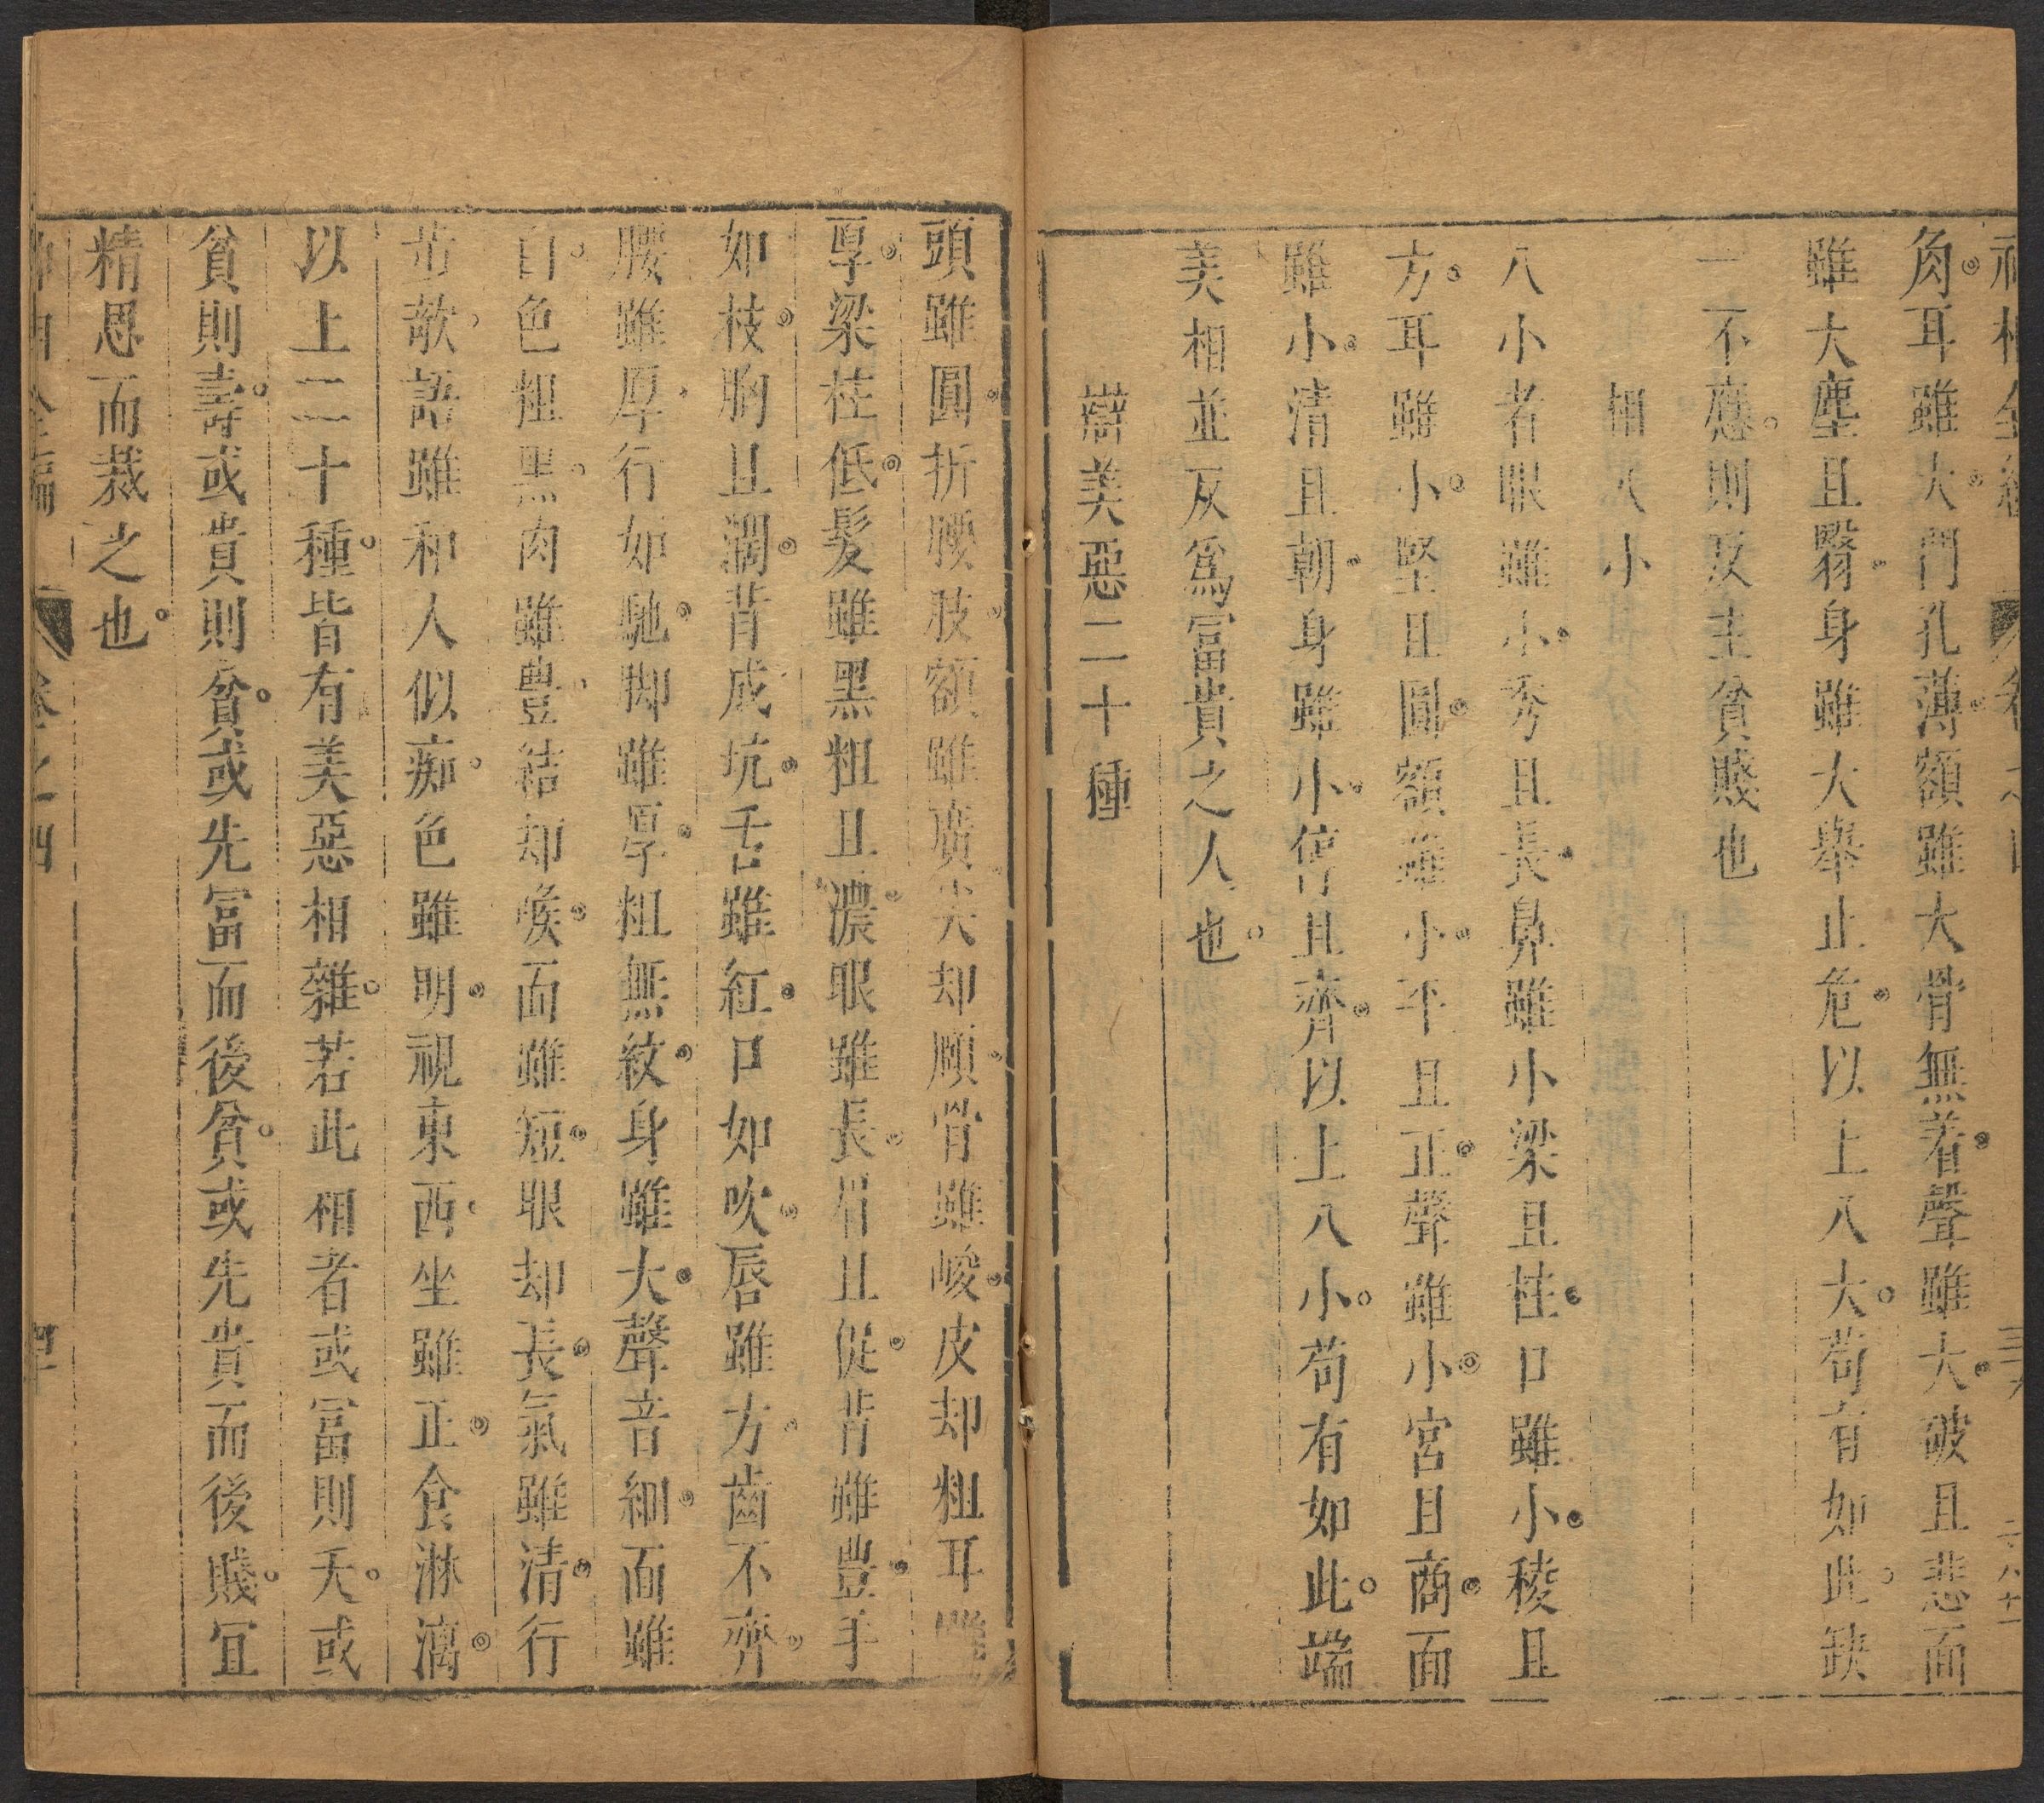 神相全編 卷之四
角耳雖大門孔薄額雖大骨無着聲雖大破且悲面
雖大塵且翳身雖大舉止危以上八大苟有如此缺
一不應則反主貧賤也
相八小
八小者眼雖小秀且長鼻雖小梁且柱口雖小稜且
方耳雖小堅且圓額雖小平且正聲雖小宮且商面
雖小清且朝身雖小停且齊以上八小苟有如此端
美相並反爲富貴之人也
辯美惡二十種
頭雖圓折腰肢額雖廣尖却頤骨雖峻皮却粗耳雖
厚梁柱低髮雖黑粗且濃眼雖長眉且促背雖豊手
如枝胸且濶背成坑舌雖紅口如吹唇雖方齒不齊
腰雖厚行如馳脚雖厚粗無紋身雖大聲音細面雖
白色粗黑肉雖豊結却喉面雖短眼却長氣雖清行
步欹語雖和人似痴色雖明視東西坐雖正食淋漓
以上二十種皆有美惡相雜若此相者或富則夭或
貧則壽或貴則貧或先富而後貧或先貴而後賤宜
精思而裁之也
神相全編 卷之四